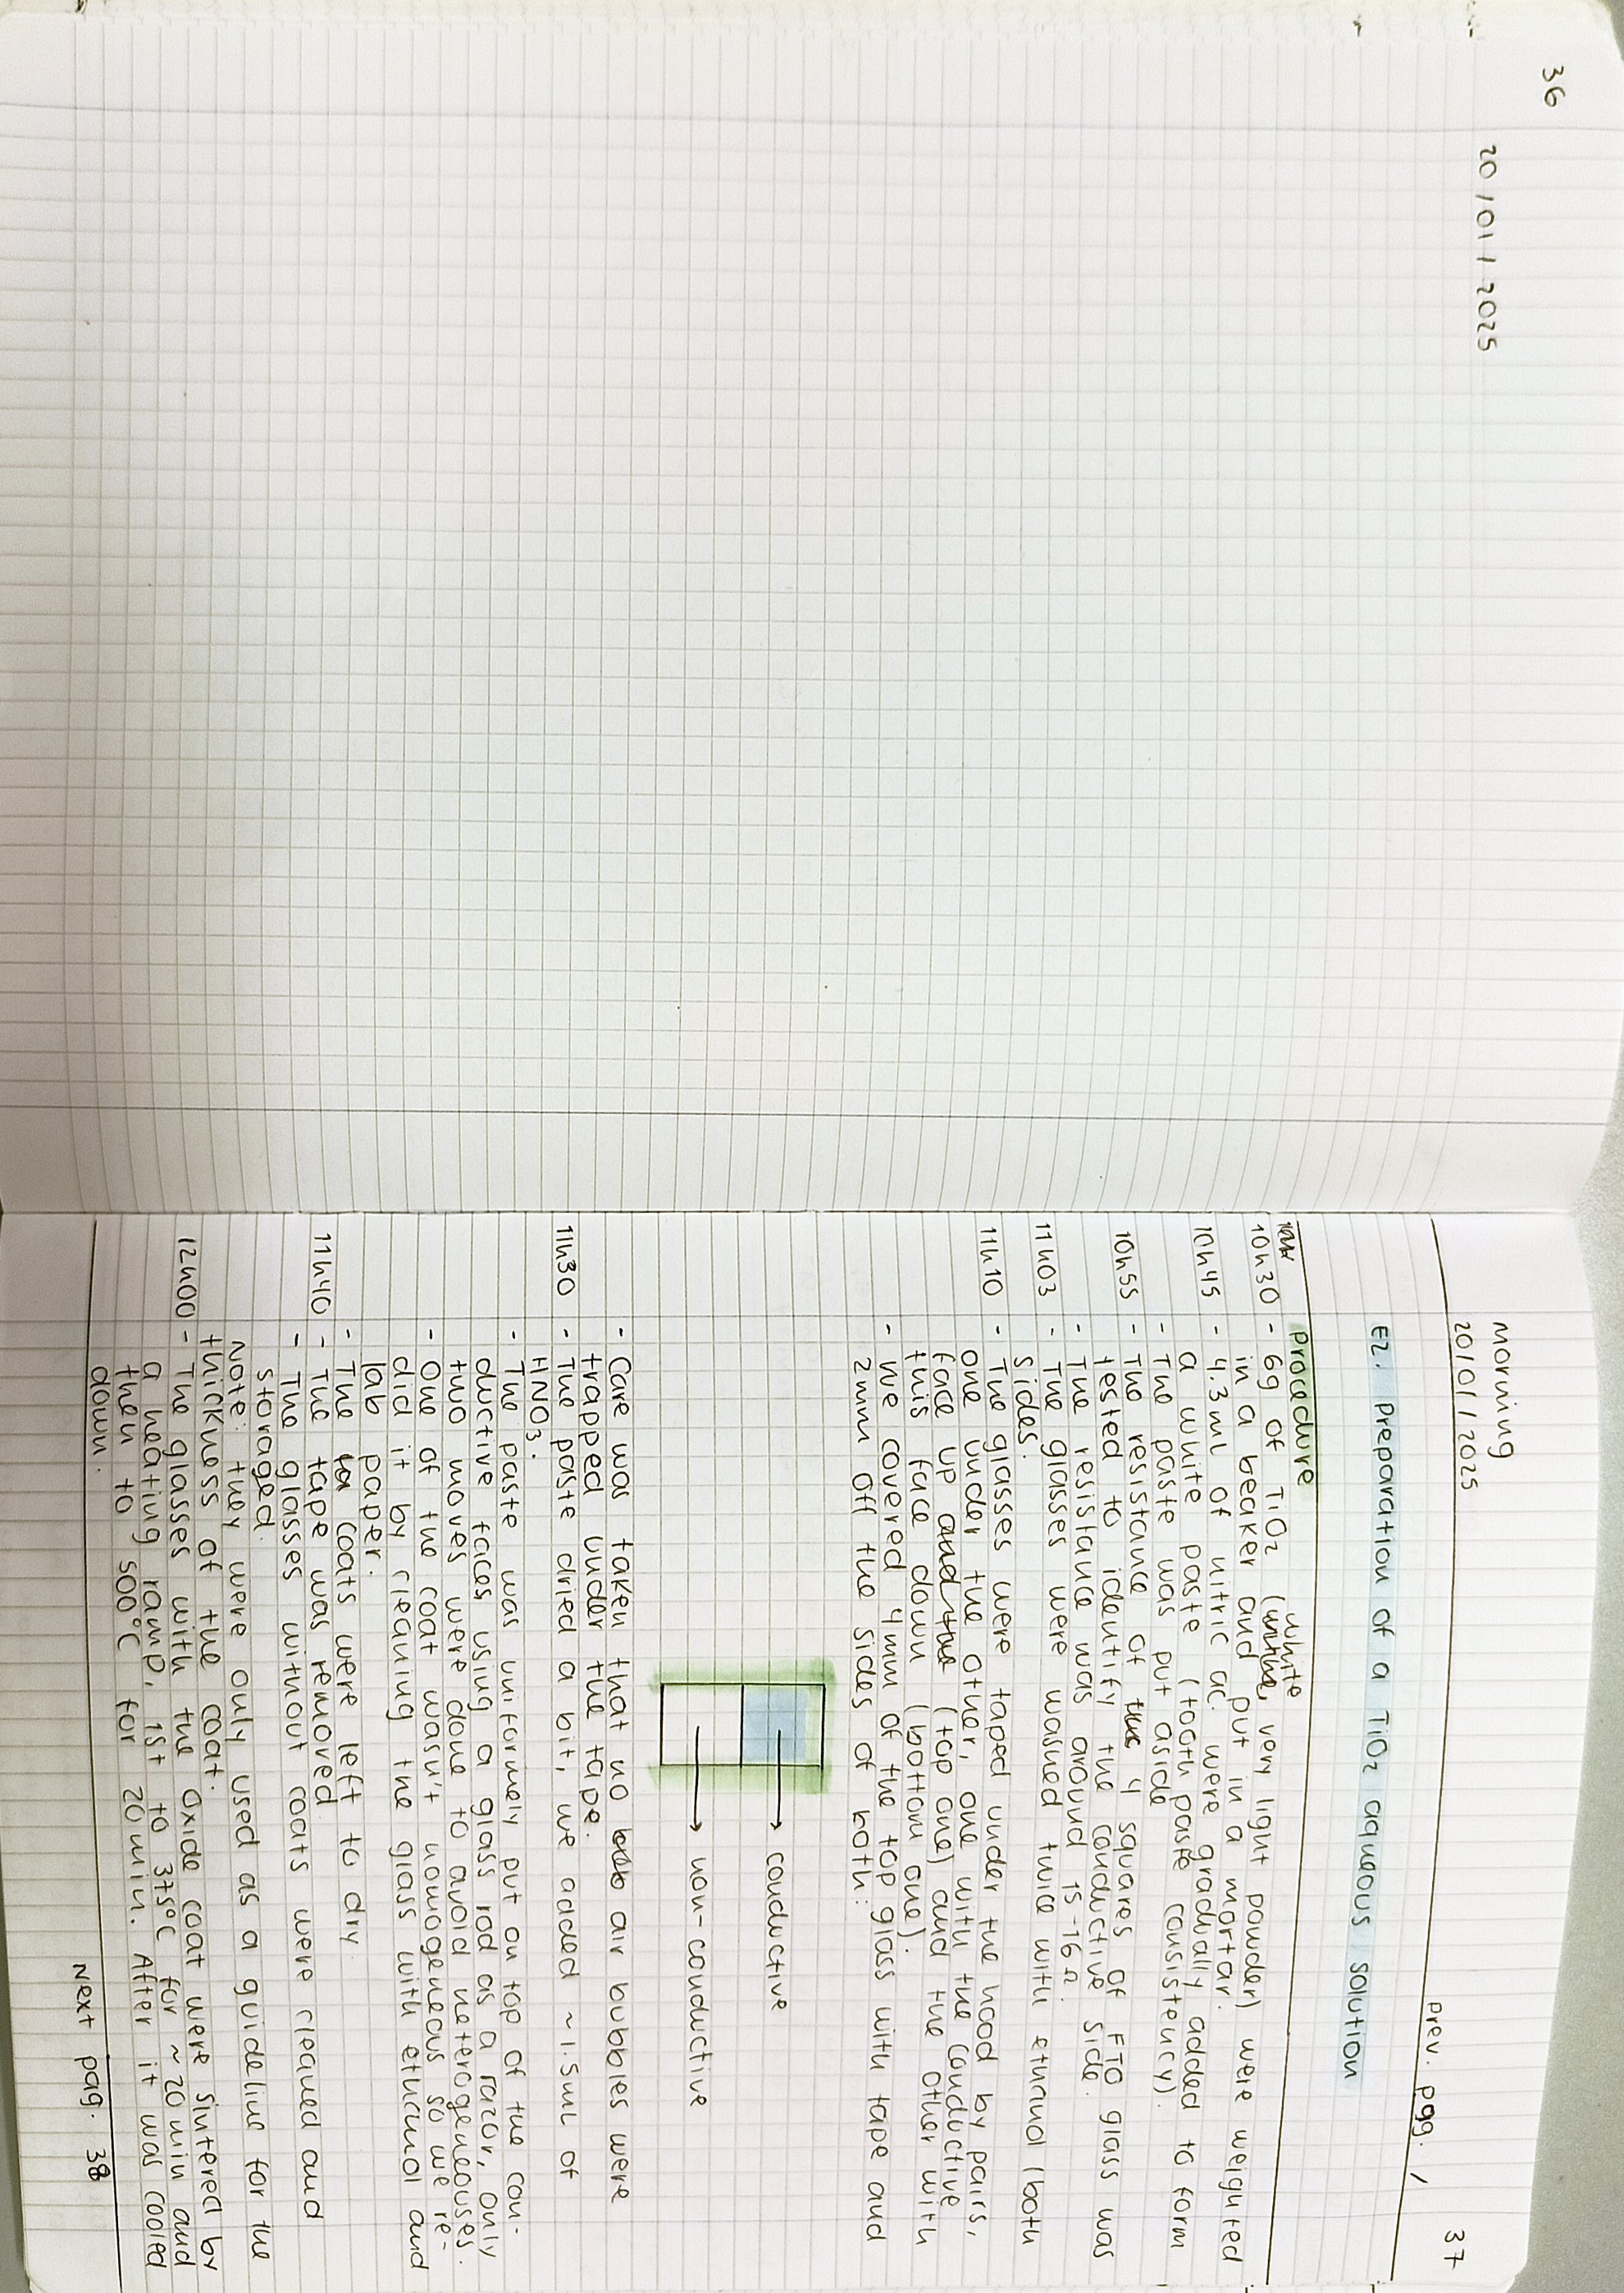 36
20/01/2025
Morning
20/01/2025
prev. pgg. /
37
E2. Preparation of a TiO2 aqueous solution
Procedure
white
10h30 - 6g of TiO2 (white, very light powder) were weighted
in a beaker and put in a mortar.
10h45 - 4.3mL of nitric ac. were gradually added to form
a white paste (toothpaste consistency).
- The paste was put aside
10h55 - The resistance of the 4 squares of FTO glass was
tested to identify the conductive side.
- The resistance was around 15-16 Ω.
11h03 - The glasses were washed twice with ethanol (both
sides.
11h10 - The glasses were taped under the hood by pairs,
one under the other, one with the conductive
face up and the (top one) and the other with
this face down (bottom one).
- We covered 4mm of the top glass with tape and
2mm off the sides of both:
conductive
non-conductive
- Care was taken that no air bubbles were
trapped under the tape.
11h30 - The paste dried a bit, we added ~1.5mL of
HNO3.
- The paste was uniformely put on top of the con-
ductive faces using a glass rod as a razor, only
two moves were done to avoid heterogeneouses.
- One of the coat wasn't homogeneous so we re-
did it by cleaning the glass with ethanol and
lab paper.
- The coats were left to dry
11h40 - The tape was removed
- The glasses without coats were cleaned and
storaged.
Note: they were only used as a guideline for the
thickness of the coat.
12h00 - The glasses with the oxide coat were sintered by
a heating ramp, 1st to 375°C for ~20min and
then to 500°C for 20min. After it was cooled
down.
Next pag. 38